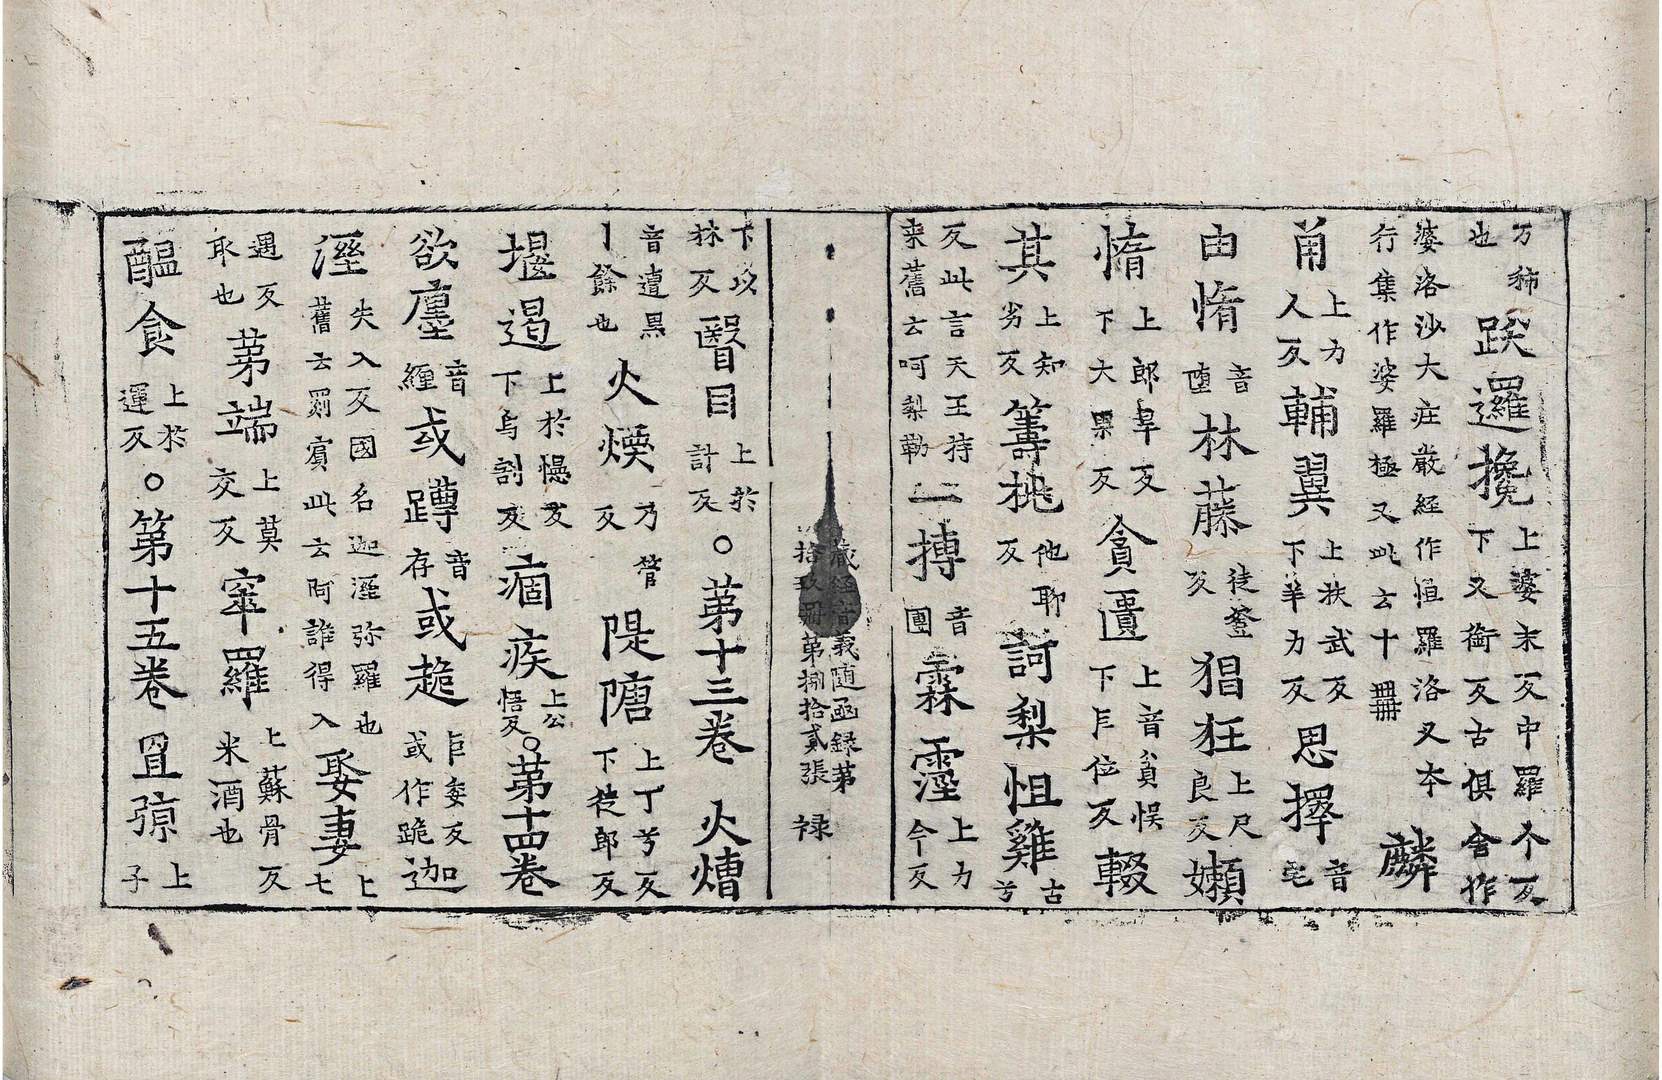 万秭也䟦邏攙上婆末反中羅个反下又銜反古俱舍作
婆洛沙大庄嚴經作恒羅洛叉本行集作娑羅極叉此云十𠕋麟
角上力人反輔翼上扶武反下羊力反思擇音宅
由惰音墮林藤徒登反猖狂上尺良反嬾
惰上郎旱反下大果反貪匱上音貧悮下𠂆位反輟
其上知劣反籌挑他聊反訶梨怛雞古兮
反此言天王持来舊云呵梨勒一摶音團霖霪上力今反
藏經音義隨函録第拾玖冊第捌拾貳張 禄
下以林反瞖目上於計反○第十三卷 火熸
音遭黑丨餘也火煗乃管反隄隚上丁兮反下徒郎反
堰遏上於憶反下烏割反痼疾上公悟反○第十四卷
欲㕓音纏或蹲音存或䠆𠂆委反或作跪迦
溼失入反國名迦溼弥羅也舊云罽賓此云阿誰得入娶妻上七
遇反茅端上莫交反窣羅上蘇骨反米酒也
醖食上於運反○第十五卷 罝弶上子